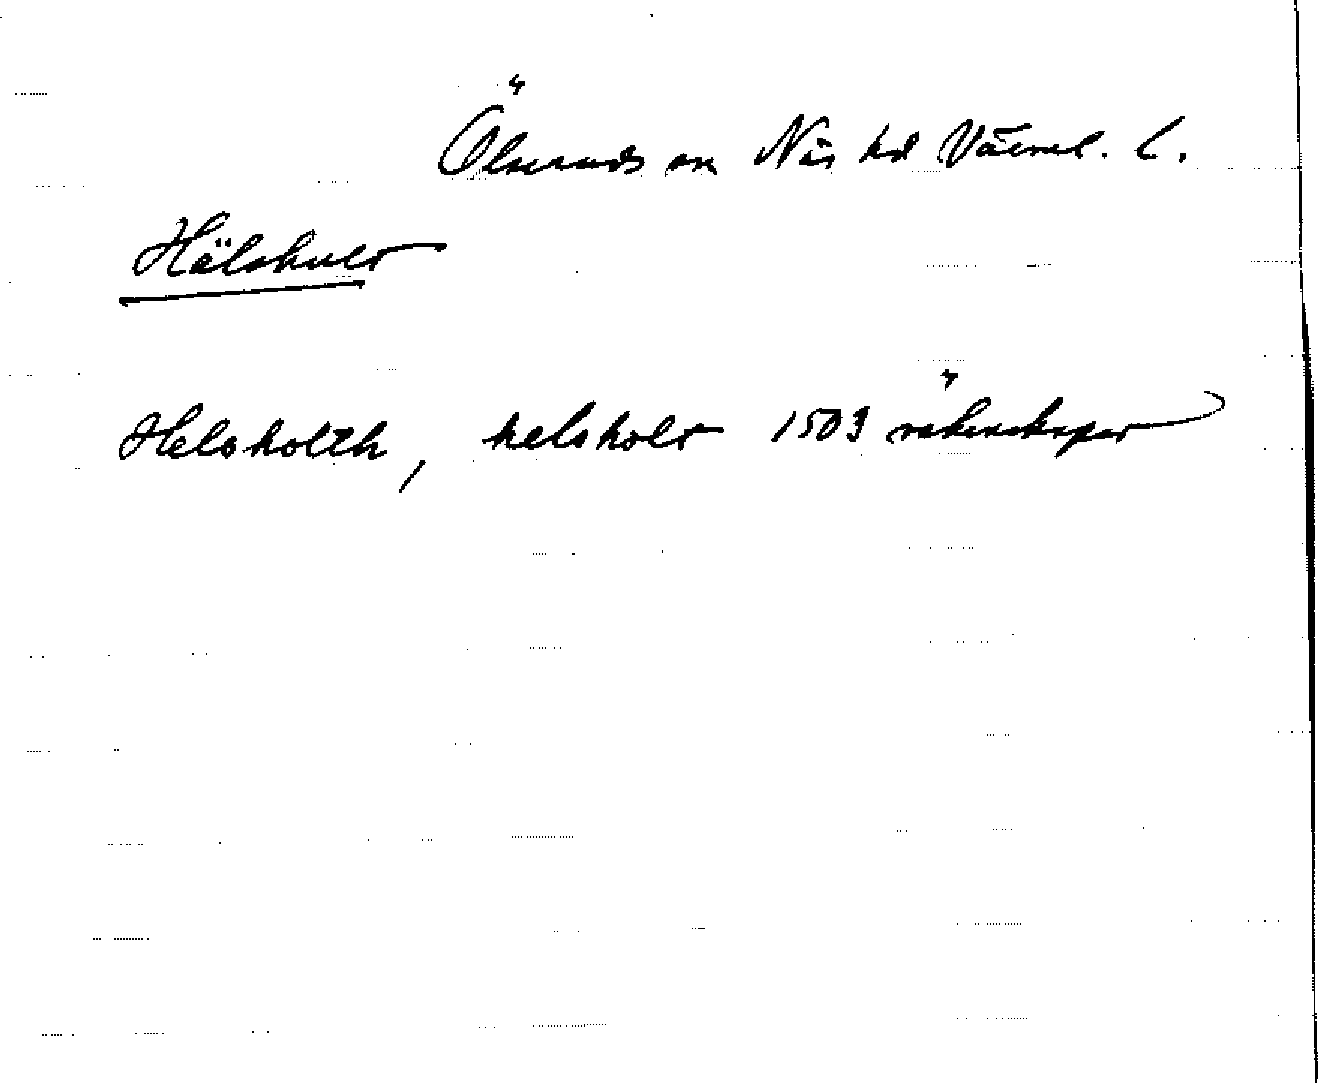 Ölseruds sn Näs hd Värml. l.
Hälshult
Helsholth, helsholt 1503 räkenskaper